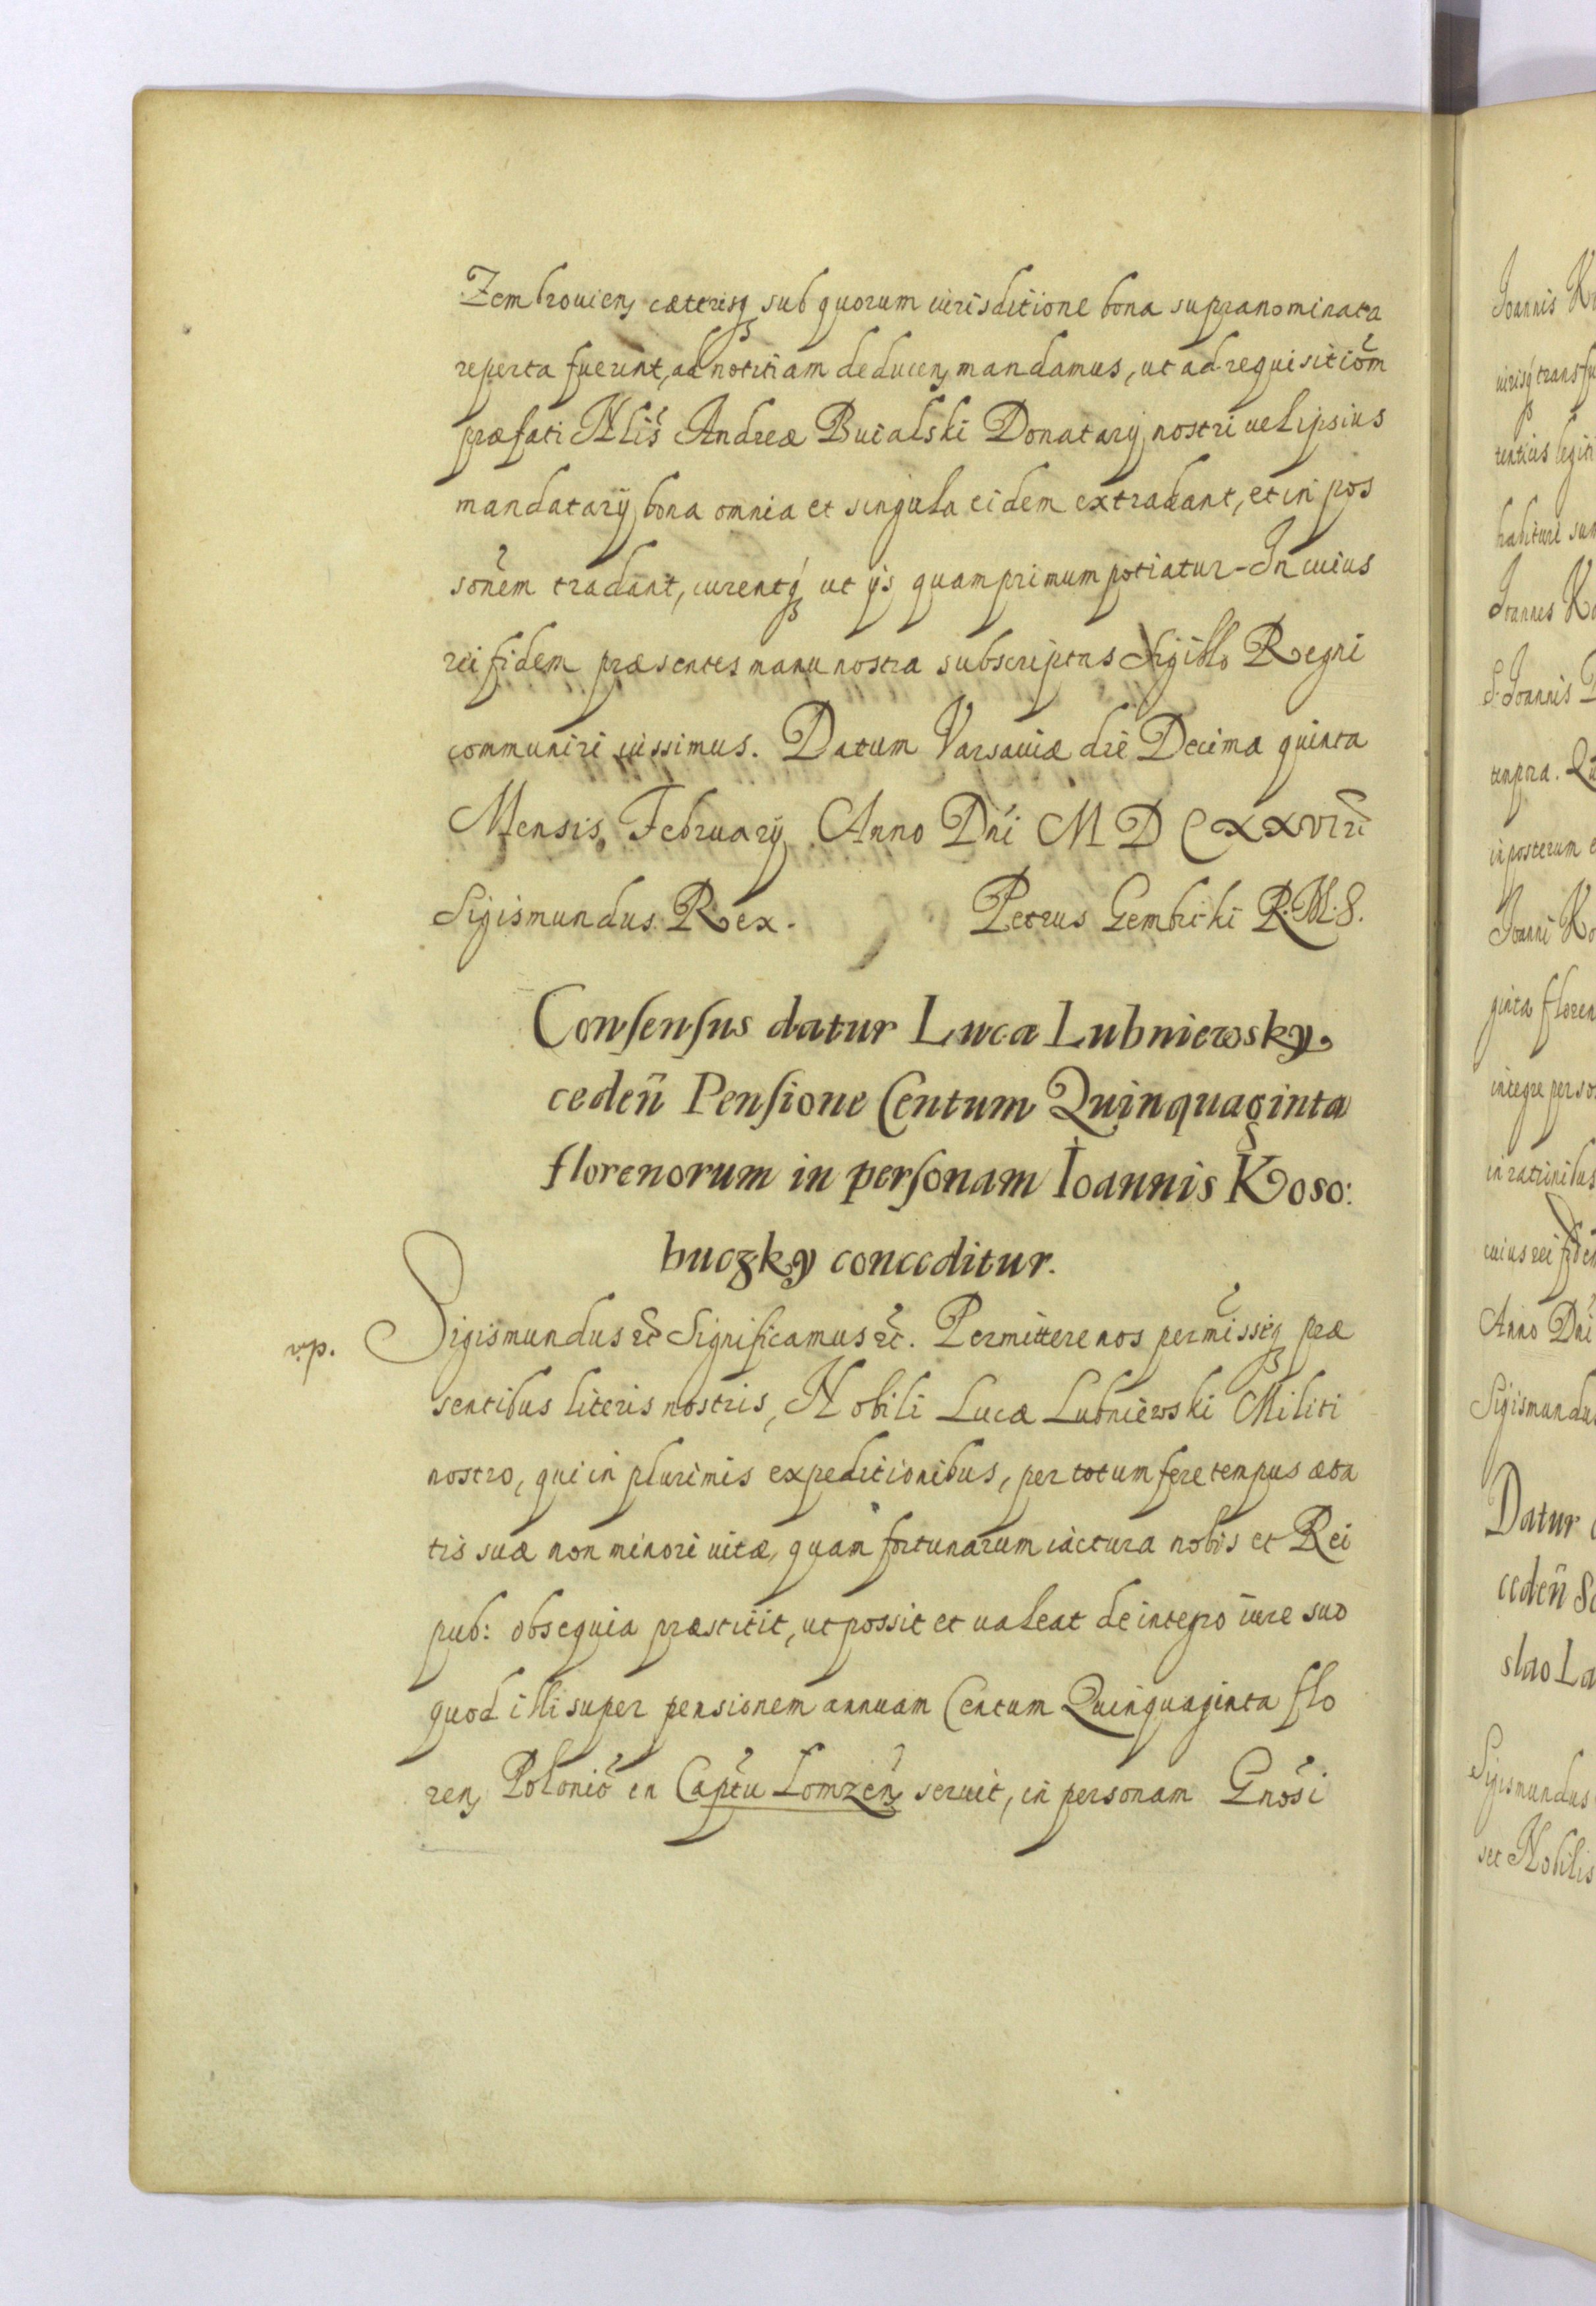 Zembrouien, cæterisq sub quorum iurisditione bona supranominata
reperta fuerint, ad notitiam deducen, mandamus, ut ad requisitiom̃
præfati Nliš Andreæ Buialski Donatarÿ nostri uel ipsius
mandatarÿ bona omnia et singula eidem extradant, et in pos
soñem tradant, curentq ut ijs quamprimum potiatur - In cuius
rei fidem præsentes manu nostra subscriptas Sigillo Regni
communiri iussimus. Datum Varsauiæ die Decima quinta
Mensis Februarÿ Anno Dñi M D C XXVIII
Sigismundus Rex. Petrus Gembicki R. M. S.
Consensus datur Lucæ Lubniewsky
cedeñ Pensione Centum Quinquaginta
florenorum in personam Ioannis Koso:
buczky conceditur.
Sigismundus etc̃ Significamus etc̃. Permittere nos permĩssq præ
sentibus literis nostris, Nobili Lucæ Lubniewski Militi
nostro, qui in plurimis expeditionibus, per totum fere tempus æta
tis suæ non minori uitæ, quam fortunarum iactura nobis et Rei
pub: obsequia præstitit, ut possit et ualeat de integro iure suo
quod illi super pensionem annuam Centum Quinquaginta flo
ren, Polonic̃ in Capt̃u Lomzeñ seruit, in personam Gnõsi
Ioannis
tenpora.
in posterum
Ioanni
ginta floren
integre
in rationibus
cuius rei fidem
Anno Dñi
Sigismundus
Datur
cedeñ
slao La
Sigismundus
Nobilis